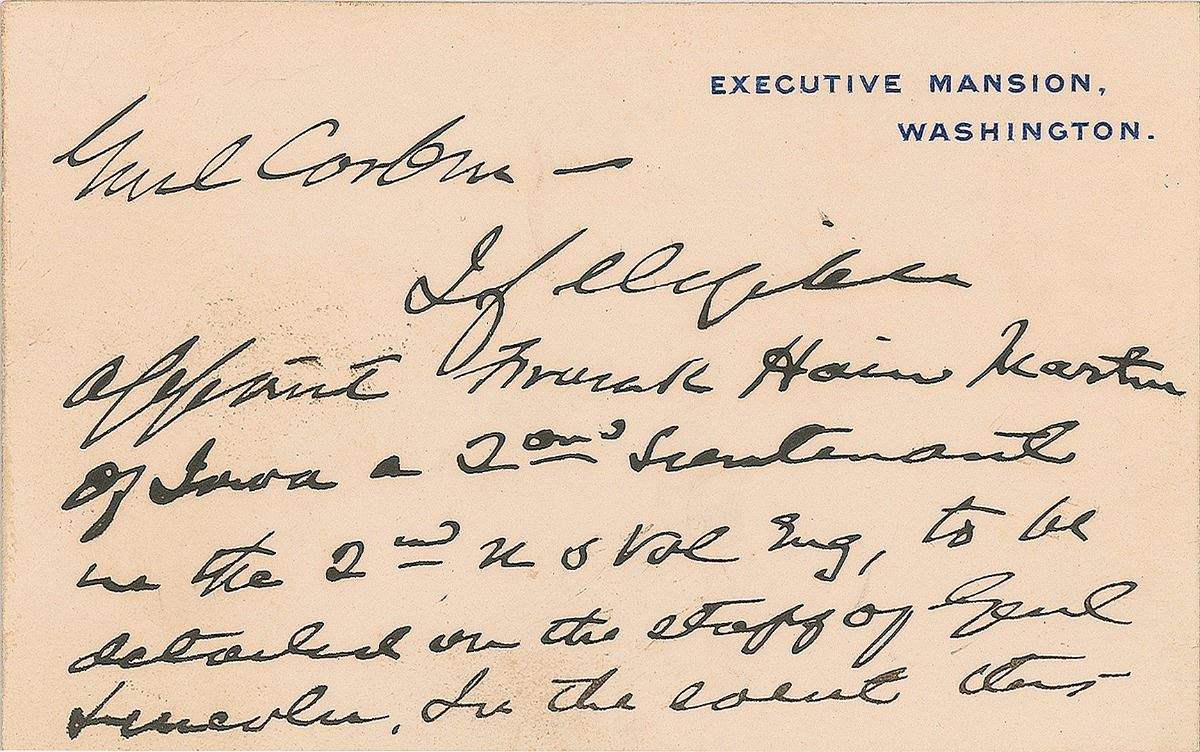 EXECUTIVE MANSION,
WASHINGTON.
Genl Corbin —
If eligible
appoint Frank Hain Martin
of Iowa a 2ond Lieutenant
in the 2nd U S Vol Eng, to be
detailed on the staff of Genl
Lincoln. In the event this